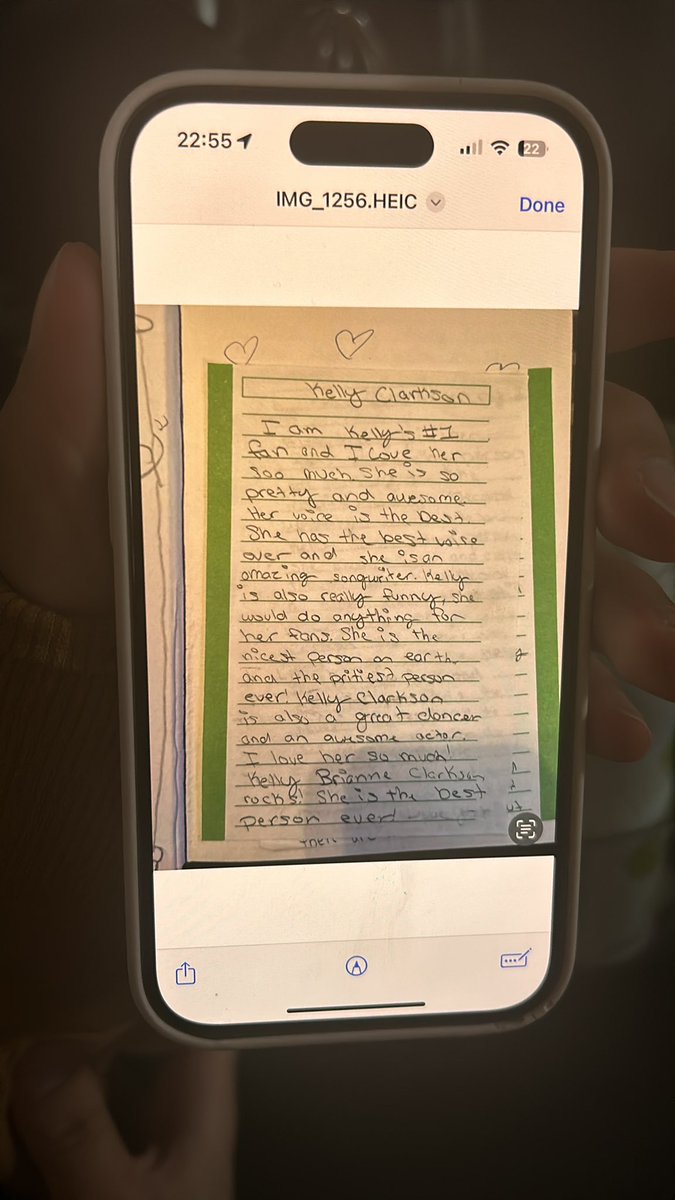 22:55
22
IMG_1256.HEIC
Done
Kelly Clarkson
I am Kelly's #1
fan and I Love her
soo much. She is so
pretty and awesome.
Her voice is the best.
She has the best voise
ever and she is an
amazing songwriter. Kelly
is also really funny, she
would do anything for
her fans. She is the
nicest person on earth
and the pritiest person
ever! Kelly Clarkson
is also a great dancer
and an awesome actor.
I love her so much!
Kelly Brianne Clarkson
rocks! She is the best
person ever!